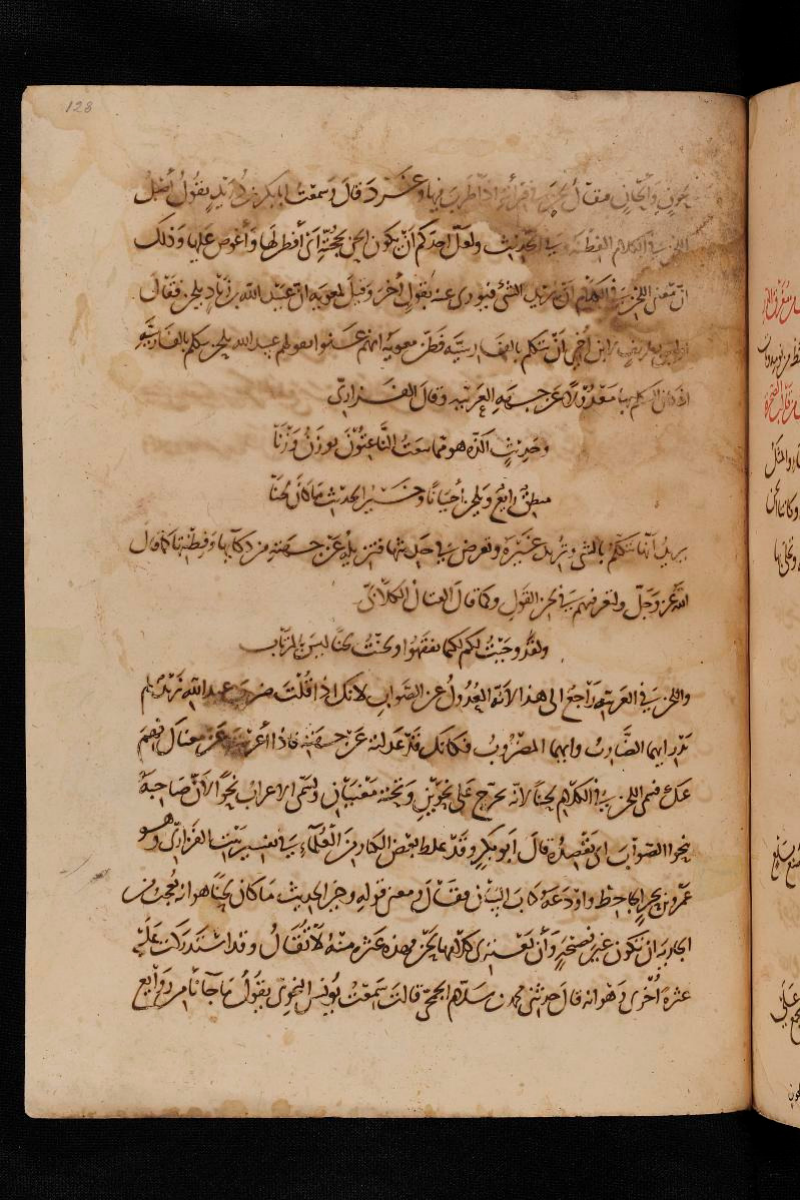 128
وألحان فقال لحن في قراءته إذا طرب فيها وغرد قال وسمعت أبا بكر بن دريد يقول أصل
اللحن في الكلام الفطنة وفي الحديث ولعل أحدكم أن يكون ألحن بحجته أي أفطن لها وأغوص عليها وذلك
أن معنى اللحن في الكلام أن تريد الشيء فتوري عنه بقول آخر وقيل لمعوية أن عبيد الله بن زياد يلحن فقال
أوليس بظريف لابن أخي أن يتكلم بالفارسية فظن معوية أنهم عنوا بقولهم عبيد الله يلحن يتكلم بالفارسية
إذ كان التكلم بها معدولا عن جهة العربية وقال الفزاري
وحديث ألذه هو مما ينعت الناعتون يوزن وزنا
منطق رائع وتلحن أحيانا وخير الحديث ما كان لحنا
يريد أنها تتكلم بالشيء وتريد غيره وتعرض في حديثها فتزيله عن جهته من ذكائها وفطنتها كما قال
الله عز وجل ولتعرفنهم في لحن القول وكما قال القتال الكلابي
ولقد وحيت لكم لكيما تفقهوا ولحنت لحنا ليس بالمرتاب
واللحن في العربية راجع إلى هذا لأنه العدول عن الصواب لأنك إذا قلت ضرب عبد الله زيد لم
يدر أيهما الضارب وأيهما المضروب فكأنك قد عدلته عن جهته فإذا أعربت عن معناك فهم
عنك فسمي اللحن في الكلام لحنا لأنه يخرج على نحوين وتحته معنيان ويسمى الإعراب نحوا لأن صاحبه
ينحوا الصواب أي يقصده قال أبو بكر وقد غلط بعض الكبار من العلماء في تفسير بيت الفزاري وهو
عمرو بن بحر الجاحظ وأودعه كتاب البيان فقال في معنى قوله وخير الحديث ما كان لحنا هو أنه تعجب من
الجارية أن تكون غير فصيحة وأن يعتري كلامها لحن فهذه عثرة منه لا تقال وقد استدركت عليه
عثرة أخرى وهو أنه قال حدثني محمد بن سلام الجمحي قال سمعت يونس النحوي يقول ما جاءنا من روائع